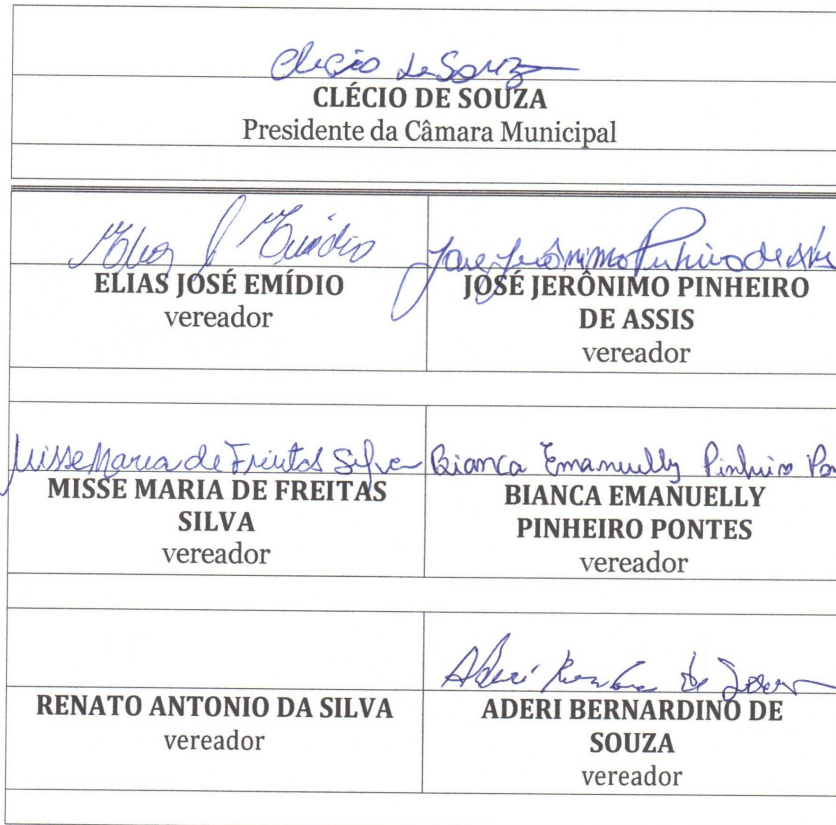 Clécio de Souza
CLÉCIO DE SOUZA
Presidente da Câmara Municipal
Elias J Emídio
ELIAS JOSÉ EMÍDIO
vereador
José Jerônimo Pinheiro de Assis
JOSÉ JERÔNIMO PINHEIRO
DE ASSIS
vereador
Misse Maria de Freitas Silva
MISSE MARIA DE FREITAS
SILVA
vereador
Bianca Emanuelly Pinheiro Pon
BIANCA EMANUELLY
PINHEIRO PONTES
vereador
RENATO ANTONIO DA SILVA
vereador
Aderi de Souza
ADERI BERNARDINO DE
SOUZA
vereador